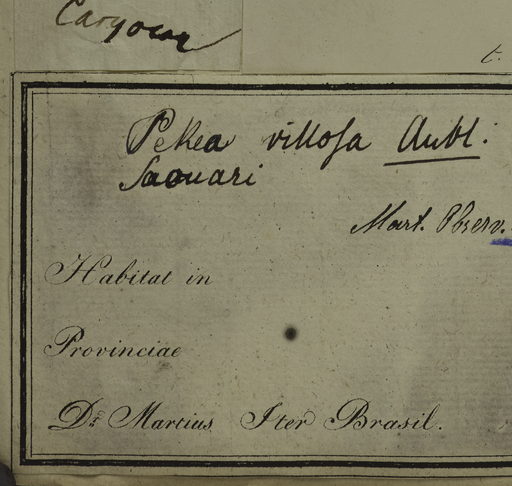 Caryocar
t.
Pekea villosa Aubl.
Saouari
Mart. Observ.
Habitat in
Provinciae
Dr. Martius Iter Brasil.